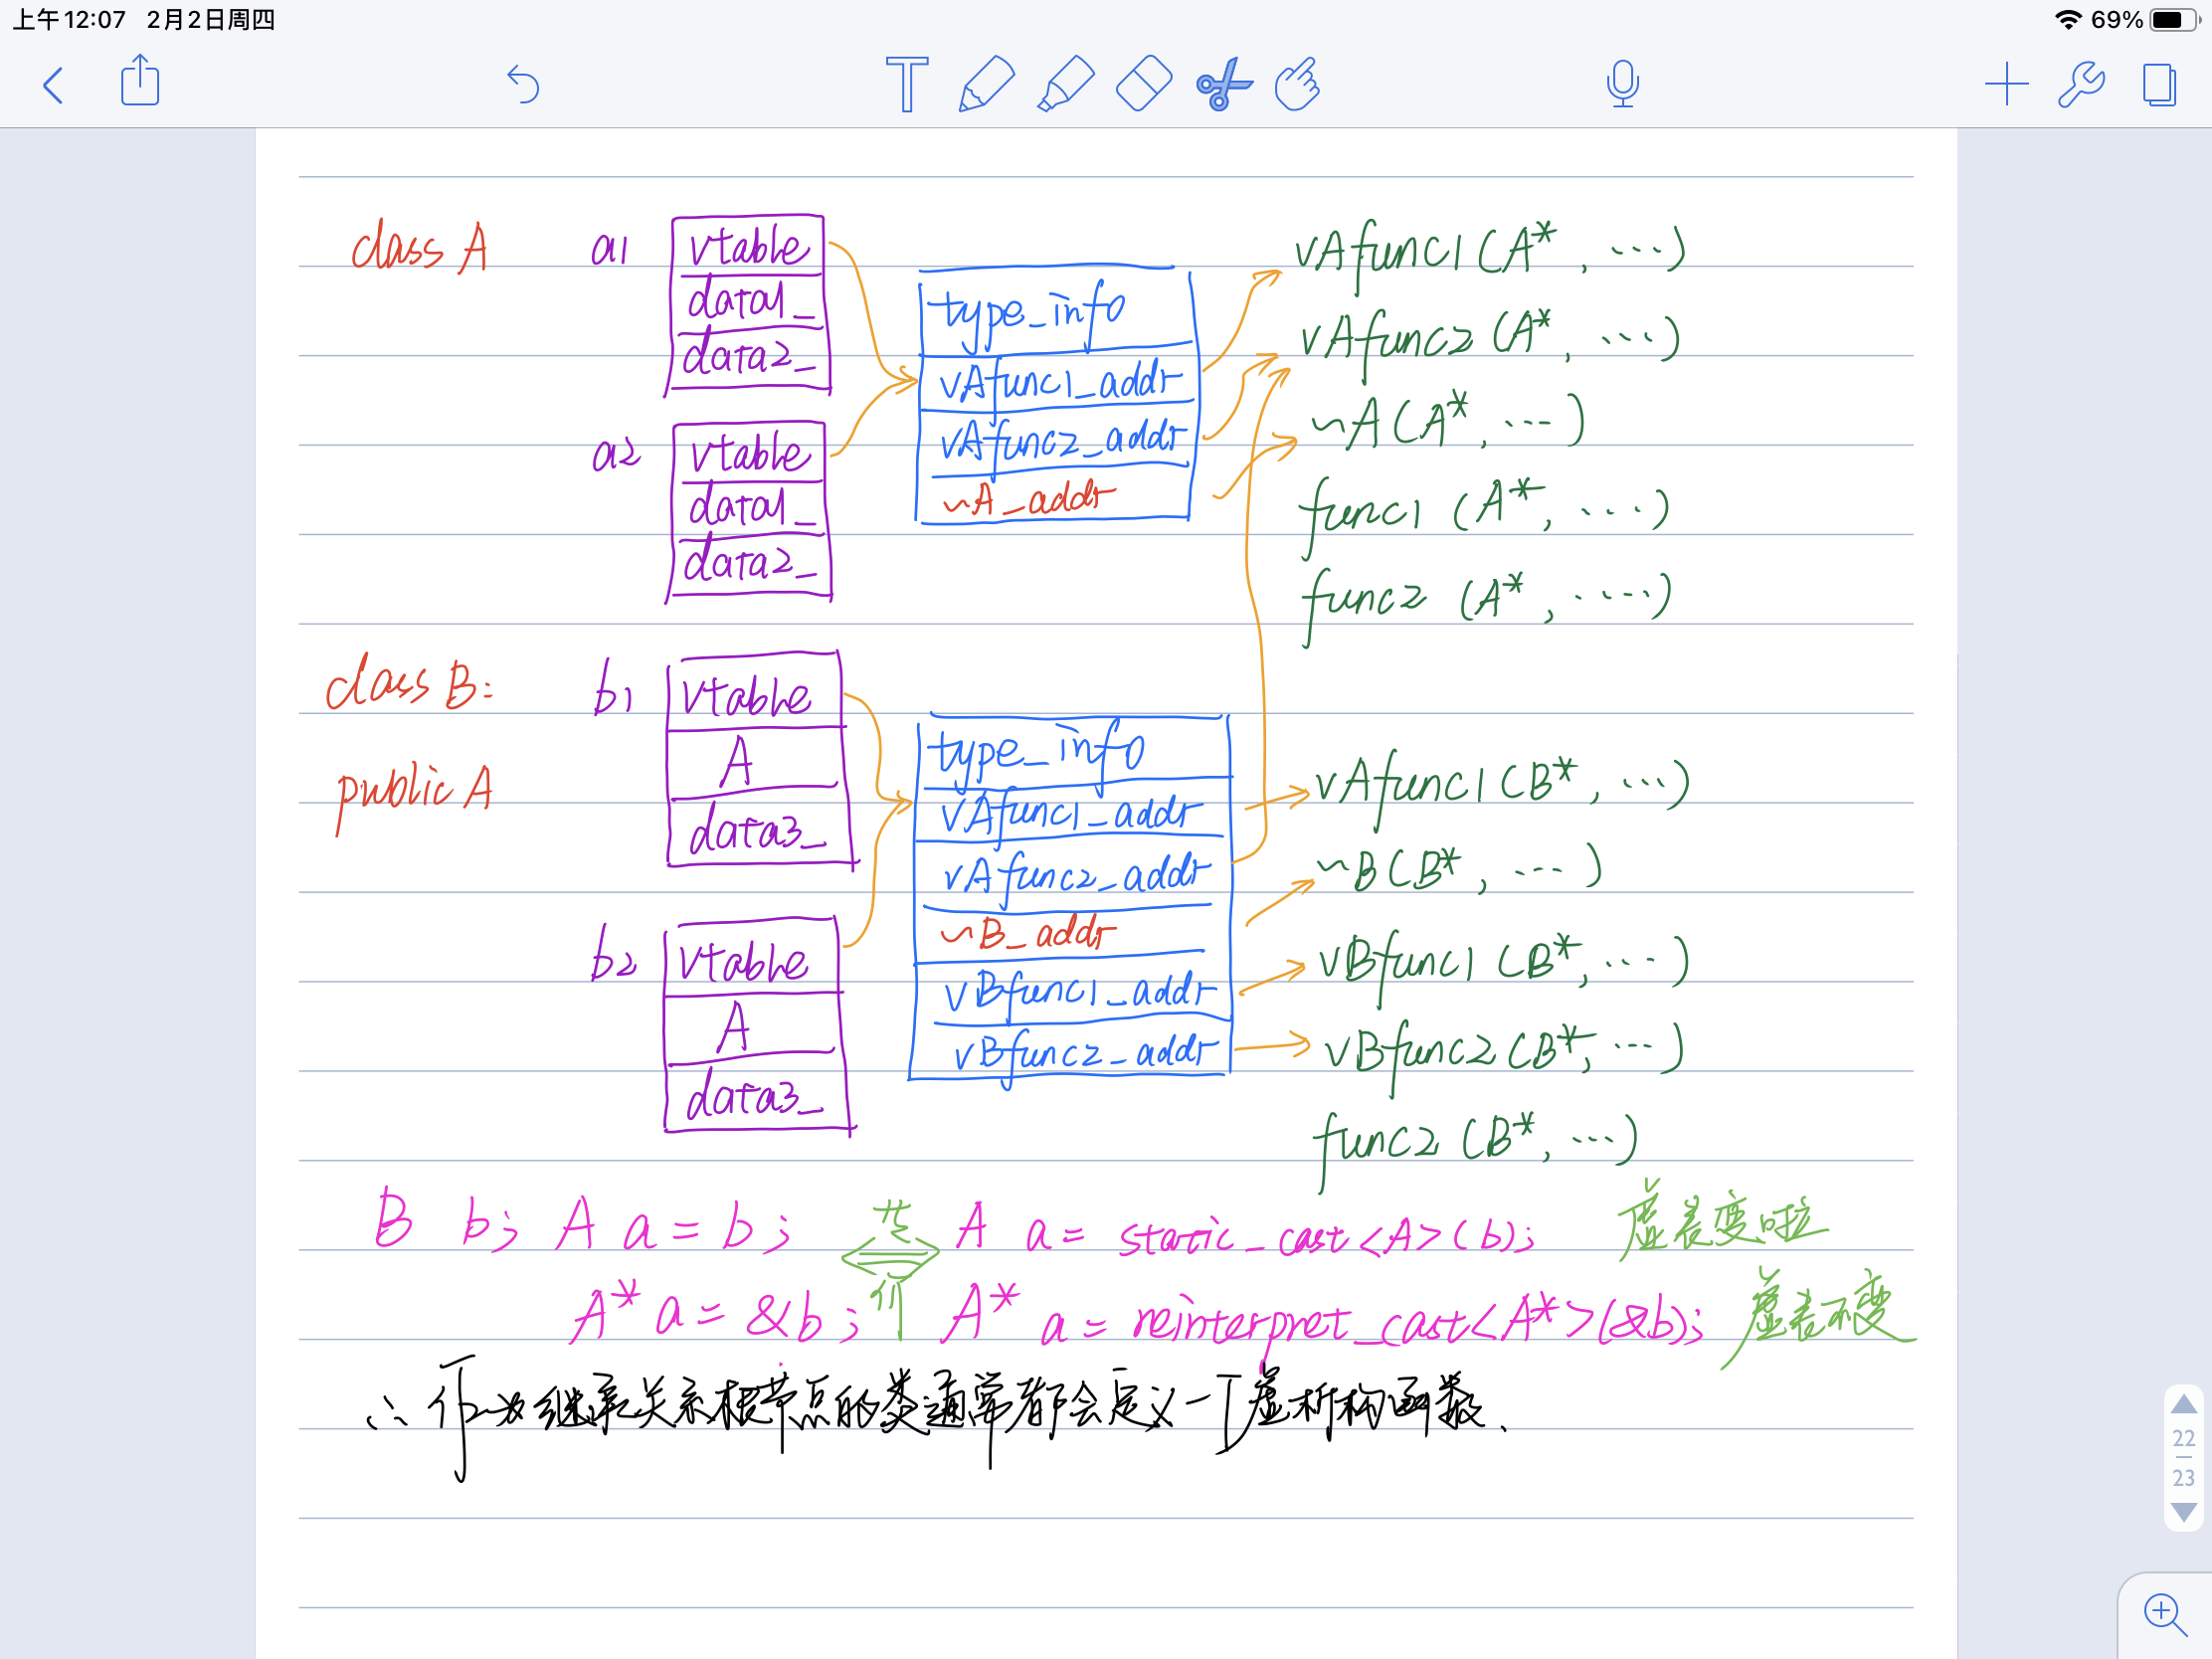 上午12:07 2月2日周四
69%
class A
a1
vtable
data1_
data2_
type_info
vAfunc1_addr
vAfunc2_addr
~A_addr
vAfunc1(A*, ...)
vAfunc2(A*, ...)
~A(A*, ...)
func1(A*, ...)
func2(A*, ....)
a2
vtable
data1_
data2_
class B:
public A
b1
vtable
A
data3_
type_info
vAfunc1_addr
vAfunc2_addr
~B_addr
vBfunc1_addr
vBfunc2_addr
vAfunc1(B*, ...)
~B(B*, ...)
vBfunc1(B*, ...)
vBfunc2(B*, ...)
func2(B*, ...)
b2
vtable
A
data3_
B b; A a = b; 等价 A a = static_cast<A>(b); 虚表变啦
A* a = &b; A* a = reinterpret_cast<A*>(&b); 虚表不变
∴ 作为继承关系根节点的类通常都会定义一个虚析构函数.
22
23